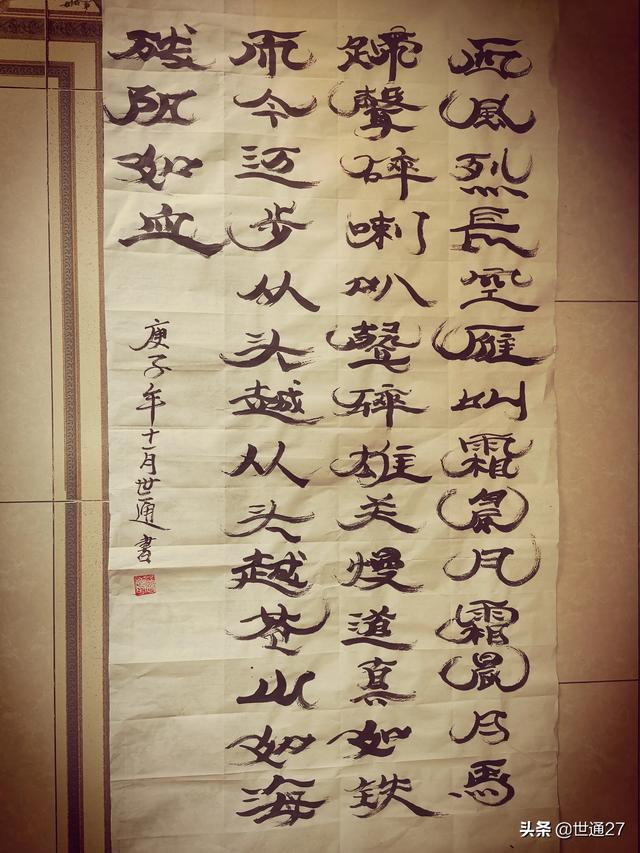 西風烈長空雁叫霜晨月霜晨月馬
蹄聲碎喇叭聲碎雄关慢道真如铁
而今迈步从头越从头越苍山如海
残阳如血
庚子年十一月世通書
头条 @世通27